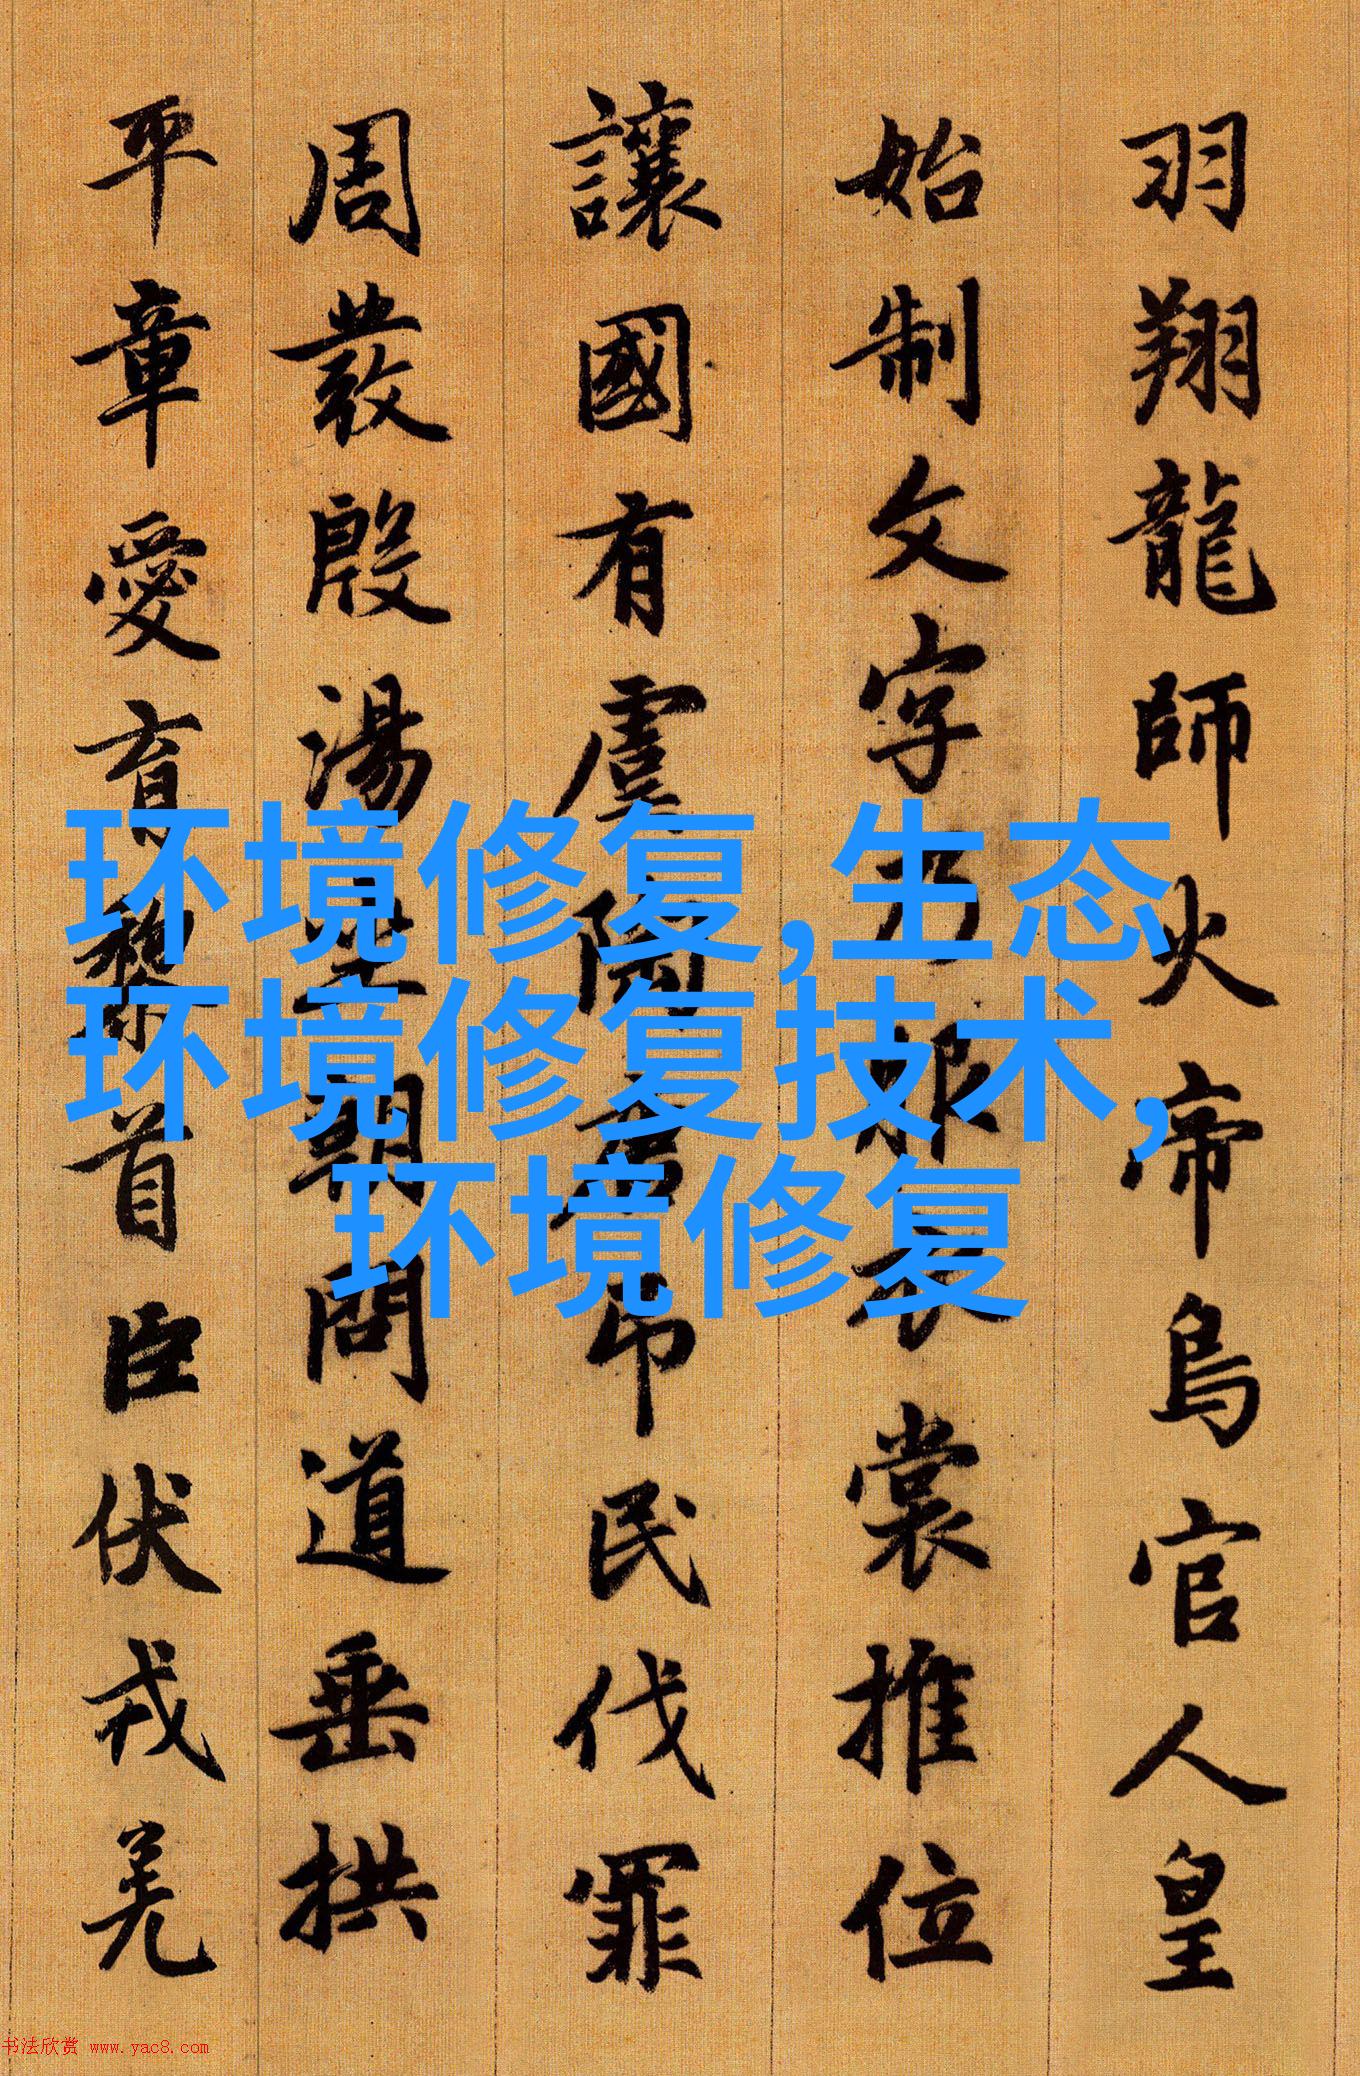 羽翔龍師火帝鳥官人皇
始制文字乃服衣裳推位
讓國有虞陶唐吊民伐罪
周發殷湯坐朝問道垂拱
平章愛育黎首臣伏戎羌
环境修复,生态
环境修复技术,
环境修复
书法欣赏 www.yac8.com